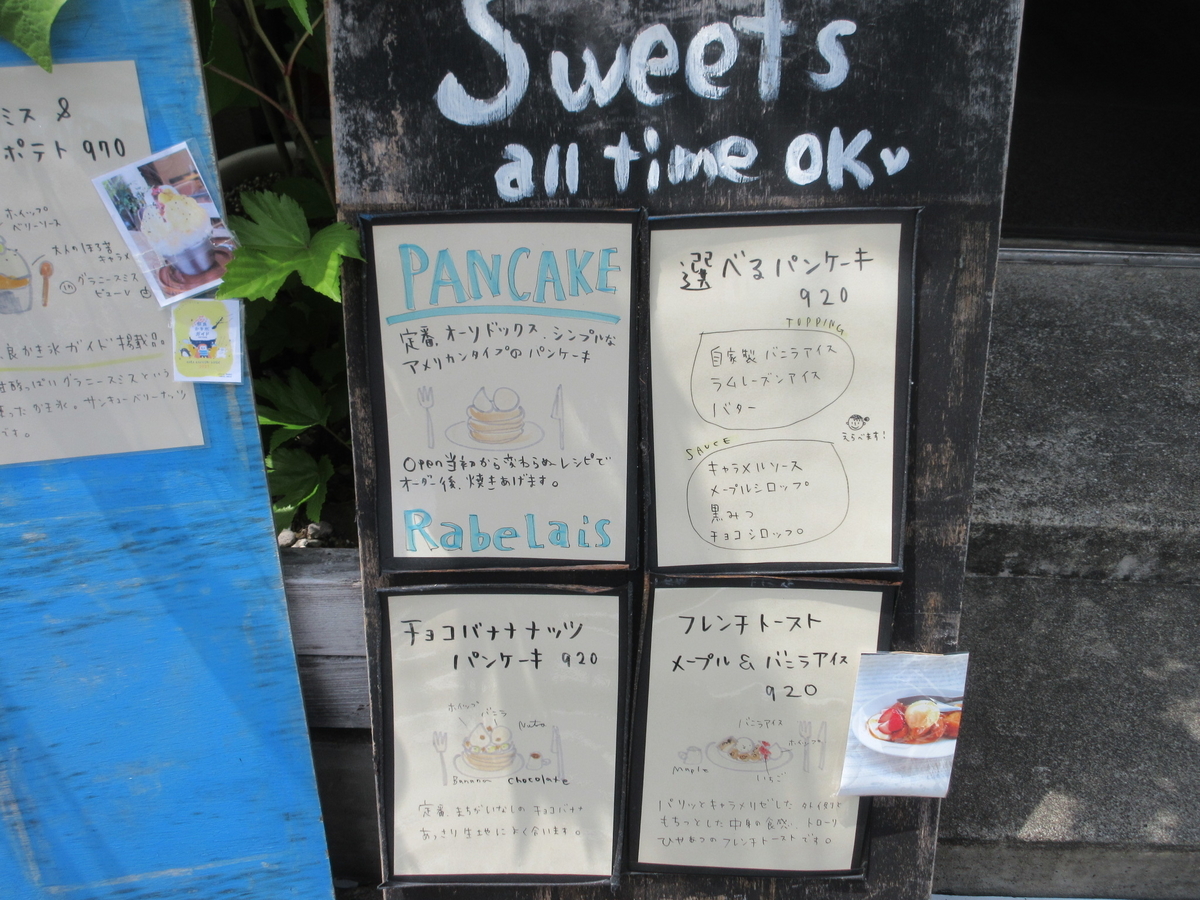 ミス &
ポテト 970
ホイップ
ベリーソース
大人のほろ苦
キャラメ
in グラニースミス
ピューレ
良かき氷ガイド掲載品
甘酸っぱいグラニースミスという
かき氷。サンキューベリーナッツ
です。
Sweets
all time OK
PANCAKE
定番、オーソドックス、シンプルな
アメリカンタイプのパンケーキ
Open当初から変わらぬレシピで
オーダー後、焼きあげます。
Rabelais
選べるパンケーキ
920
TOPPING
自家製バニラアイス
ラムレーズンアイス
バター
えらべます!
SAUCE
キャラメルソース
メープルシロップ
黒みつ
チョコシロップ
チョコバナナナッツ
パンケーキ 920
ホイップ
バニラ
Nuts
Banana
chocolate
定番、まちがいなしのチョコバナナ
あっさり生地によく合います。
フレンチトースト
メープル & バニラアイス
920
バニラアイス
ホイップ
Maple
いちご
パリッとキャラメリゼした
もちっとした中身の食感、トローリ
ひややつのフレンチトーストです。